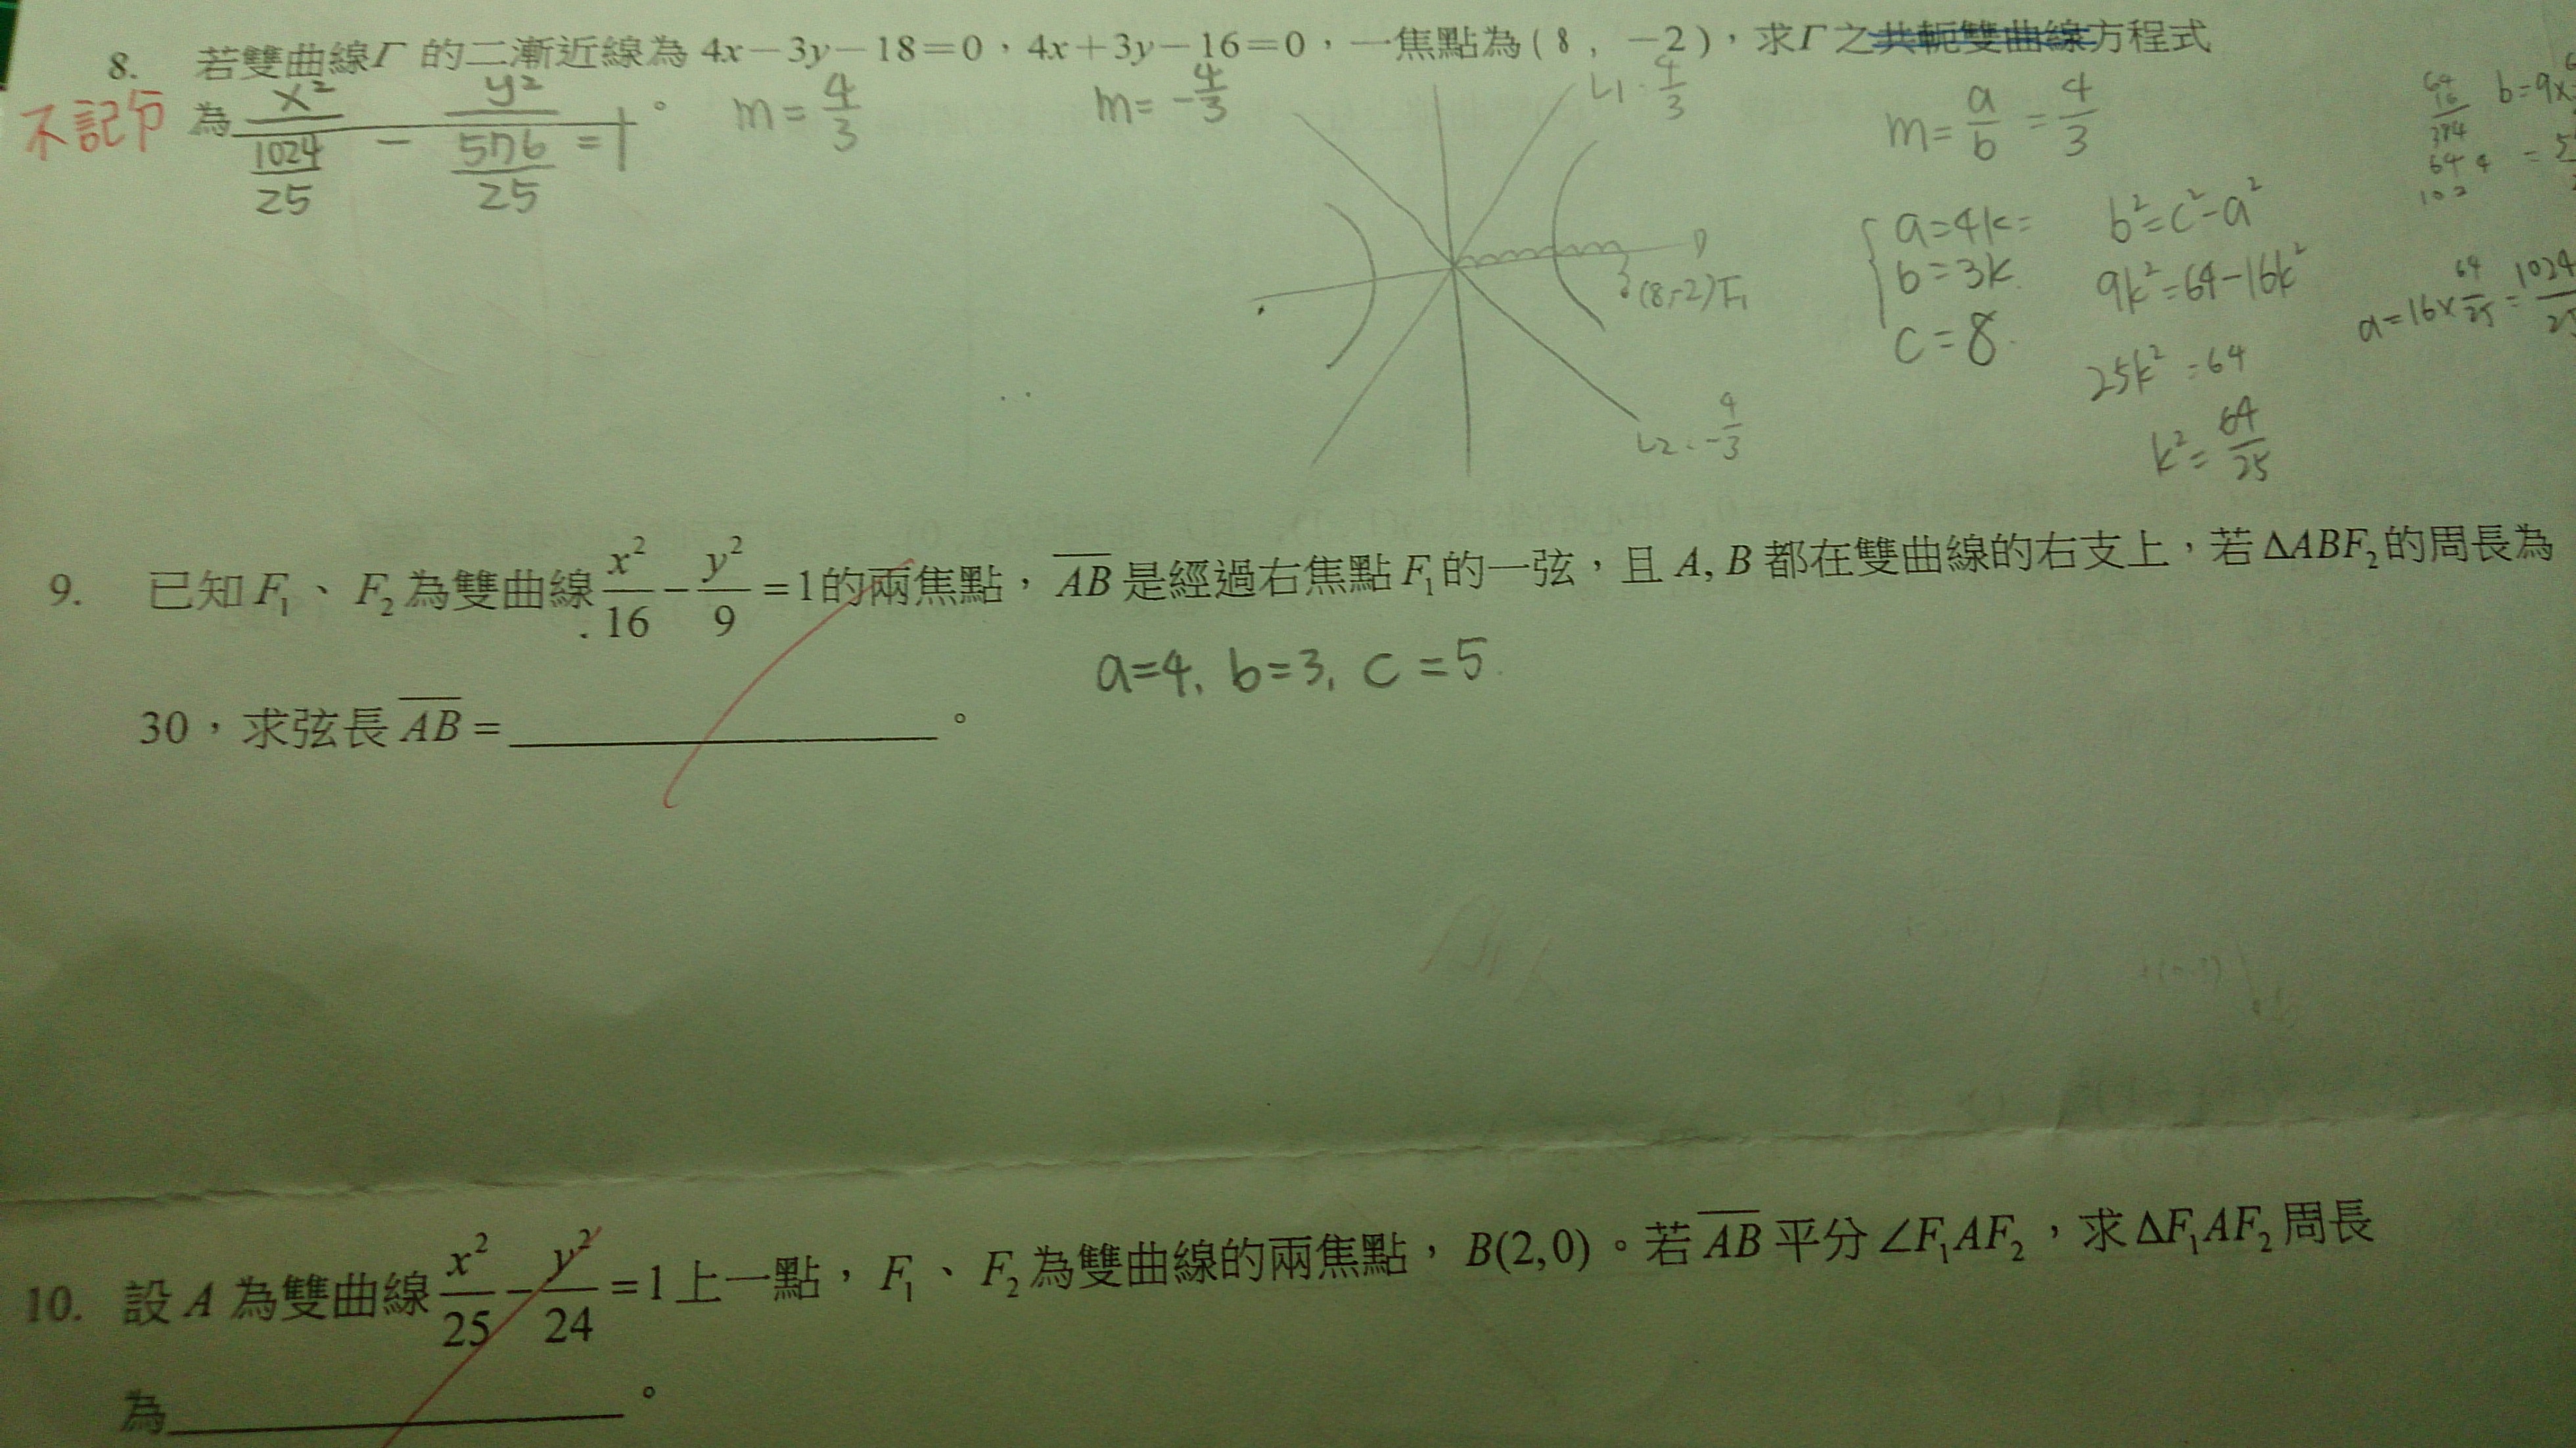 8. 若雙曲線Γ 的二漸近線為 4x−3y−18=0，4x+3y−16=0，一焦點為(8，−2)，求Γ之共軛雙曲線方程式
不記分 為 x²/(1024/25) − y²/(576/25) = 1。
m = 4/3
m = -4/3
L1: 4/3
(8,-2)F₁
L2: -4/3
m = a/b = 4/3
a=4k=
b=3k
c=8.
b²=c²-a²
9k²=64-16k²
25k²=64
k²=64/25
a=16×64/25=1024
9. 已知F₁、F₂為雙曲線x²/16 − y²/9 =1的兩焦點，AB是經過右焦點F₁的一弦，且A, B都在雙曲線的右支上，若ΔABF₂的周長為
a=4, b=3, c=5.
30，求弦長AB=＿＿＿＿＿＿。
10. 設A為雙曲線x²/25 − y²/24 =1上一點，F₁、F₂為雙曲線的兩焦點，B(2,0)。若AB平分∠F₁AF₂，求ΔF₁AF₂周長
為＿＿＿＿＿＿。